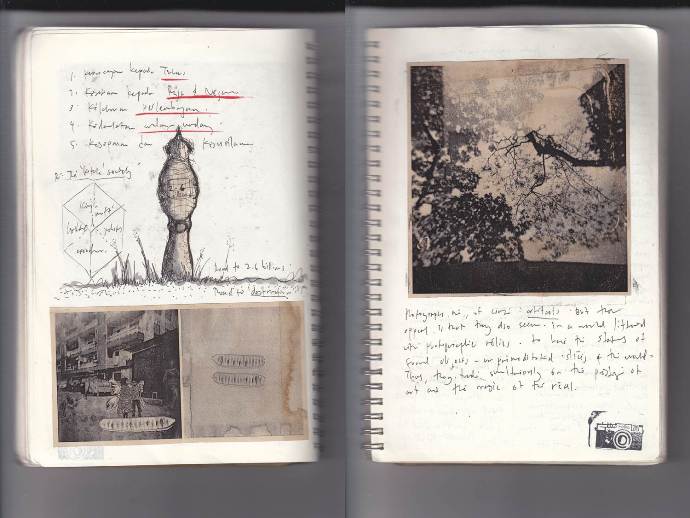 1. Kepercayaan kepada Tuhan
2. Kesetiaan kepada Raja & Negara
3. Keluhuran Perlembagaan.
4. Kedaulatan undang-undang
5. Kesopanan dan Kesusilaan
to 2.6 billions
Photographs are, of course artifacts. But their
appeal is that they also seem - in a world littered
with photographic relics - to have the status of
found objects - unpremeditated slices of the world.
Thus, they trade simultaneously on the prestige of
art and the magic of the real.